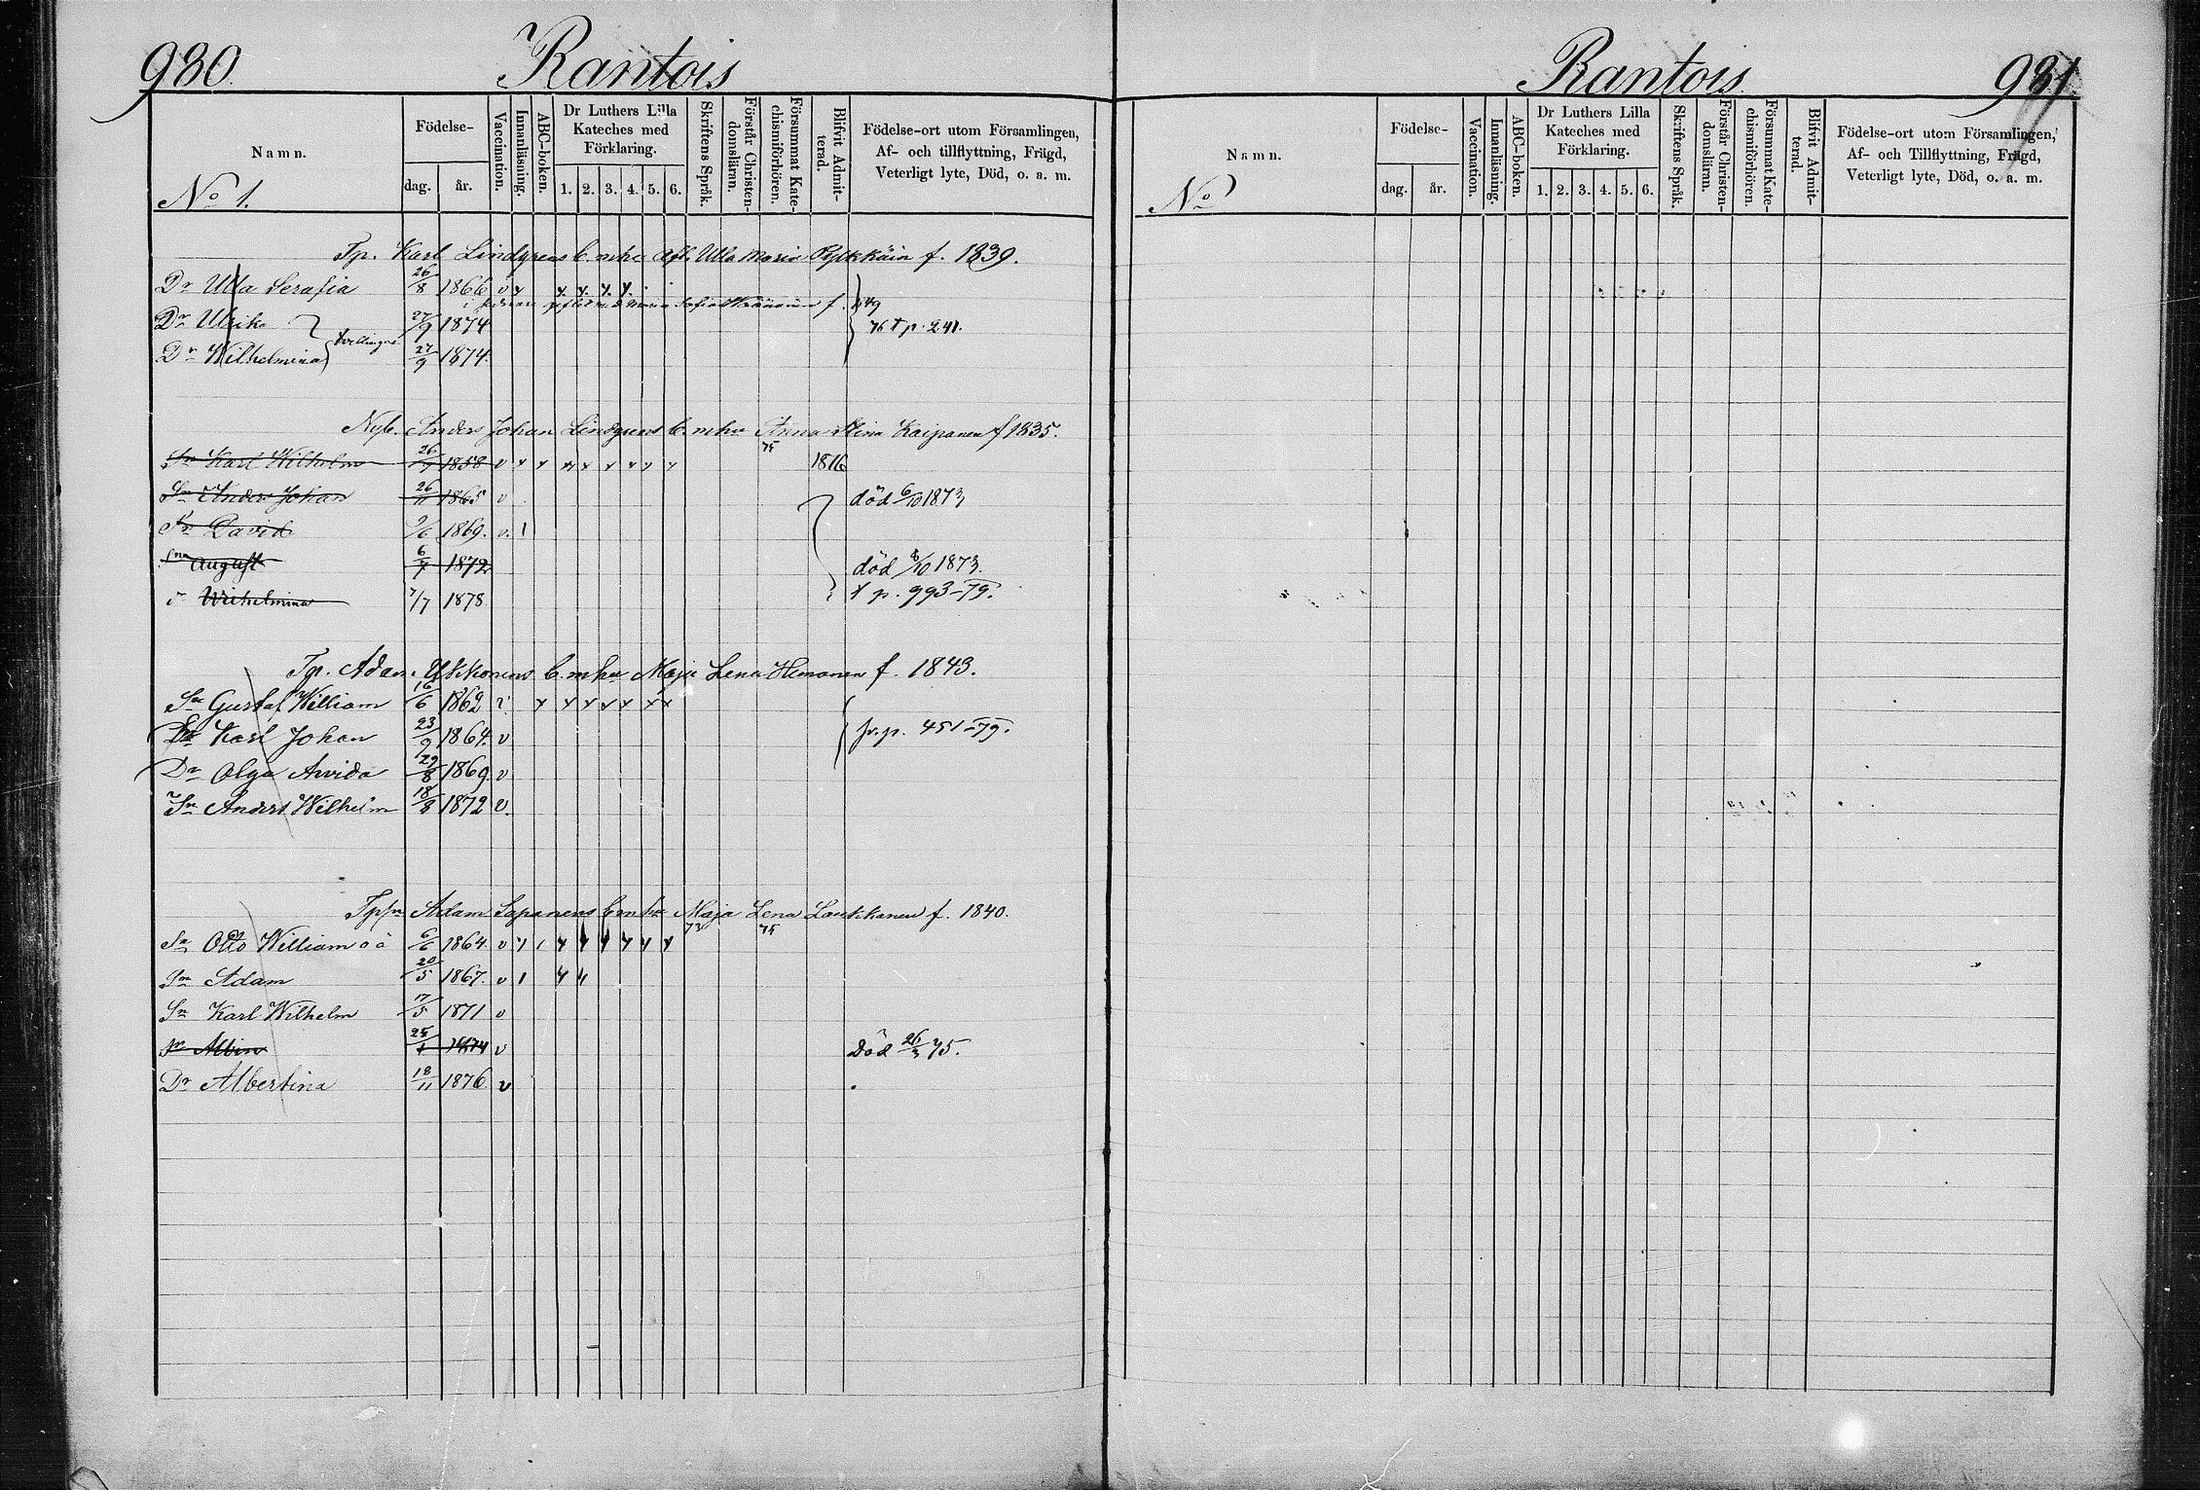 980 Rantois
Namn.
No 1.
Födelse-
dag. år.
Vaccination.
Innanläsning.
ABC-boken.
Dr Luthers Lilla
Kateches med
Förklaring.
1. 2. 3. 4. 5. 6.
Skriftens Språk.
Förstår Christen-
domsläran.
Försummat Kate-
chismiförhören.
Blifvit Admit-
terad.
Födelse-ort utom Församlingen,
Af- och tillflyttning, Frägd,
Veterligt lyte, Död, o. a. m.
Tp. Karl Lindgrens b. m. hu Ulla Maria f. 1839.
Dr Ulla Serafia 26/8 1866 v
Dr Ulrika 27/9 1874 76 t p. 241.
Dr Wilhelmina 27/9 1874.
Nyb. Anders Johan Lindgrens b. m hu Anna Stina Kaipanen f 1835.
75
Sn Karl Wilhelm 1858 v 1816
Sn Anders Johan 26/11 1865 v död 6/10 1873
Sn David 9/6 1869. v. 1
Sn August 1872 död 8/10 1873.
Wilhelmina 7/7 1878 t p. 993-79.
Tp. Adam b. m hu Maja Lena f. 1843.
Sn Gustaf William 16/6 1862
Karl Johan 23/9 1864. v fr. p. 451-79.
Dr Olga Arvida 29/8 1869. v
Sn Anders Wilhelm 18/8 1872 v.
Adam Lapanens b m hu Maja Lena Laukkanen f. 1840.
73 75
Sn Otto William 6/6 1864. v
Sn Adam 20/5 1867. v 1
Sn Karl Wilhelm 17/5 1871 v
Sn Albin 25/1 1874 v Död 26/3 75.
Dr Albertina 18/11 1876 v
Rantois 981
Namn.
No
Födelse-
dag. år.
Vaccination.
Innanläsning.
ABC-boken.
Dr Luthers Lilla
Kateches med
Förklaring.
1. 2. 3. 4. 5. 6.
Skriftens Språk.
Förstår Christen-
domsläran.
Försummat Kate-
chismiförhören.
Blifvit Admit-
terad.
Födelse-ort utom Församlingen,
Af- och Tillflyttning, Frägd,
Veterligt lyte, Död, o. a. m.